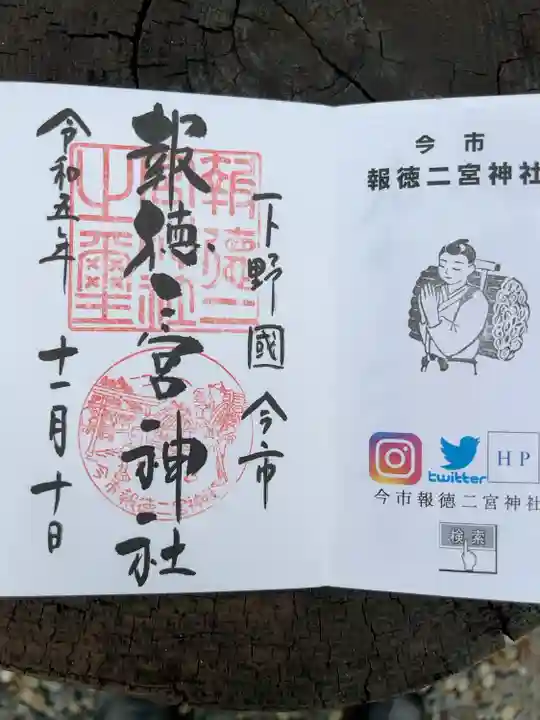 下野國 今市
報徳二宮神社
令和五年 十一月十日
報徳二
宮神社
之璽
今市報徳二宮神社
今市
報徳二宮神社
twitter
HP
今市報徳二宮神社
検索